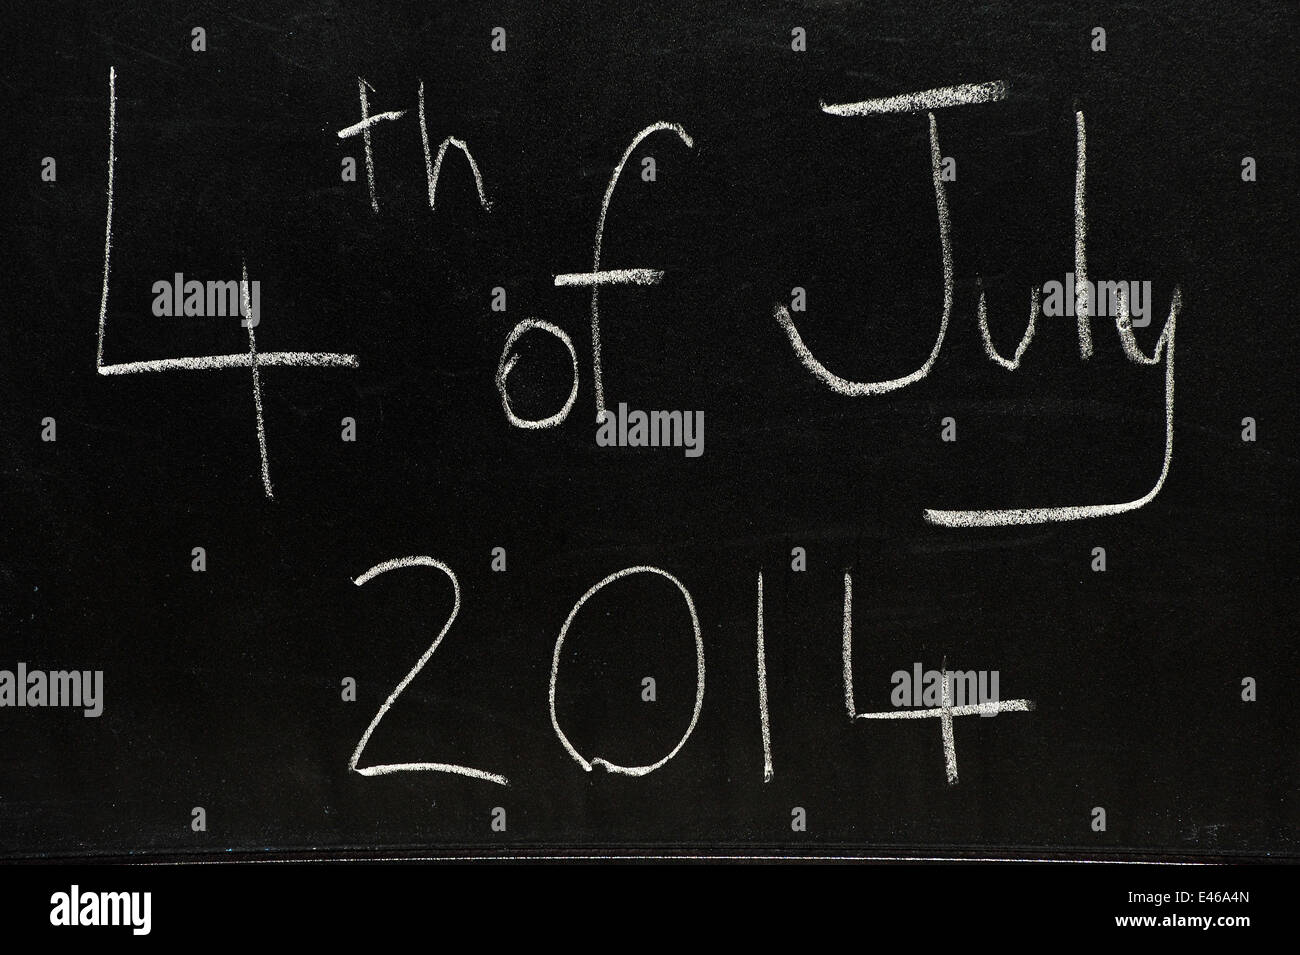 4th of July
2014
alamy
alamy
alamy
alamy
alamy
Image ID: E46A4N
www.alamy.com